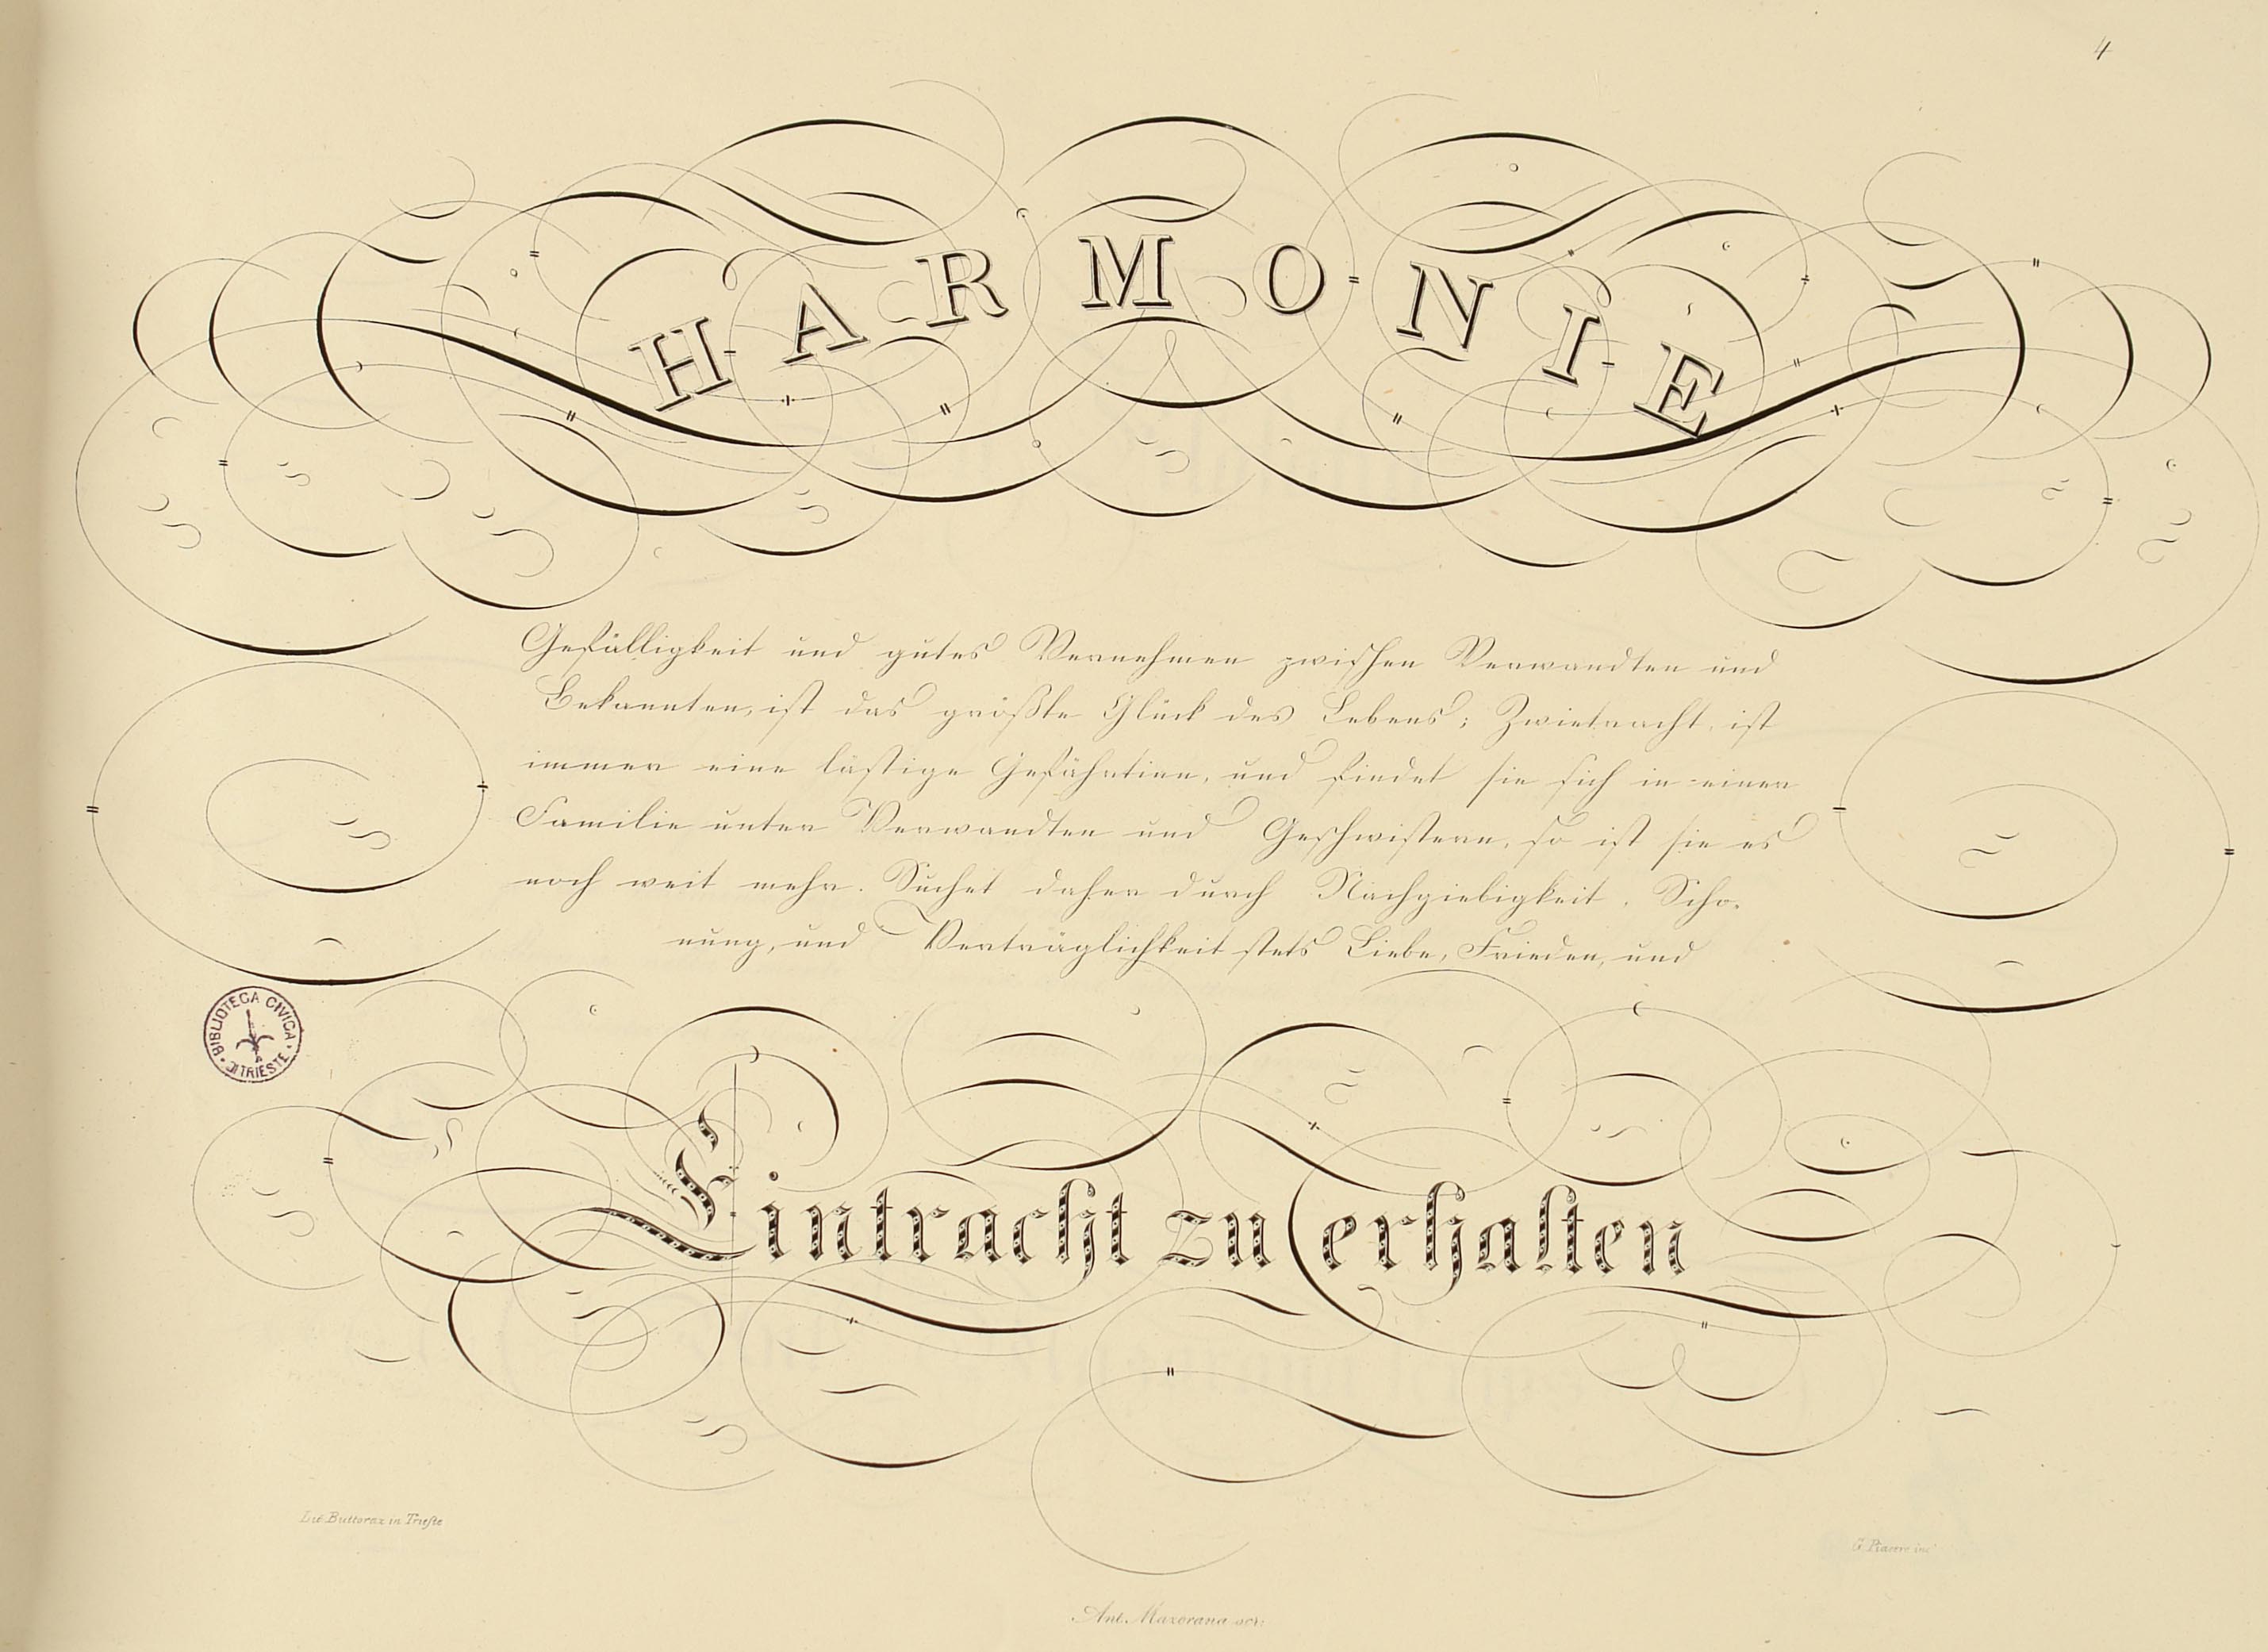 4
HARMONIE
Gefälligkeit und gutes Vernehmen zwischen Verwandten und
Bekannten, ist das größte Glück des Lebens; Zwietracht, ist
immer eine lästige Gefährtinn, und findet sie sich in einer
Familie unter Verwandten und Geschwistern, so ist sie es
noch weit mehr. Suchet daher durch Nachgiebigkeit, Scho-
nung, und Verträglichkeit stets Liebe, Frieden, und
BIBLIOTECA CIVICA
DI TRIESTE
Eintracht zu erhalten
in Trieste
Ant. Maxorana scr: